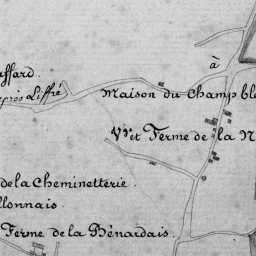 affard.
après Liffré
à
Maison du Champ bl
Vve et Ferme de la N
de la Cheminetterie.
llonnais.
Ferme de la Bénardais.